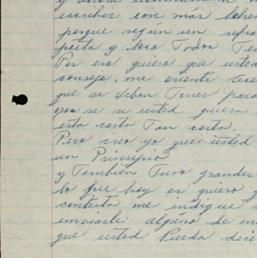 escribir con mas
porque según un refra
poeta y loco Todos Te
Por eso quiero que usted
consejo, me oriente
que se deben Tener para
que se
esta carta Tan corta.
Pero creo ya que usted
un Principio
y También Tuvo grandes
lo que hoy es quiero
contesta me indique
enviarle alguno de m
que usted Pueda dice